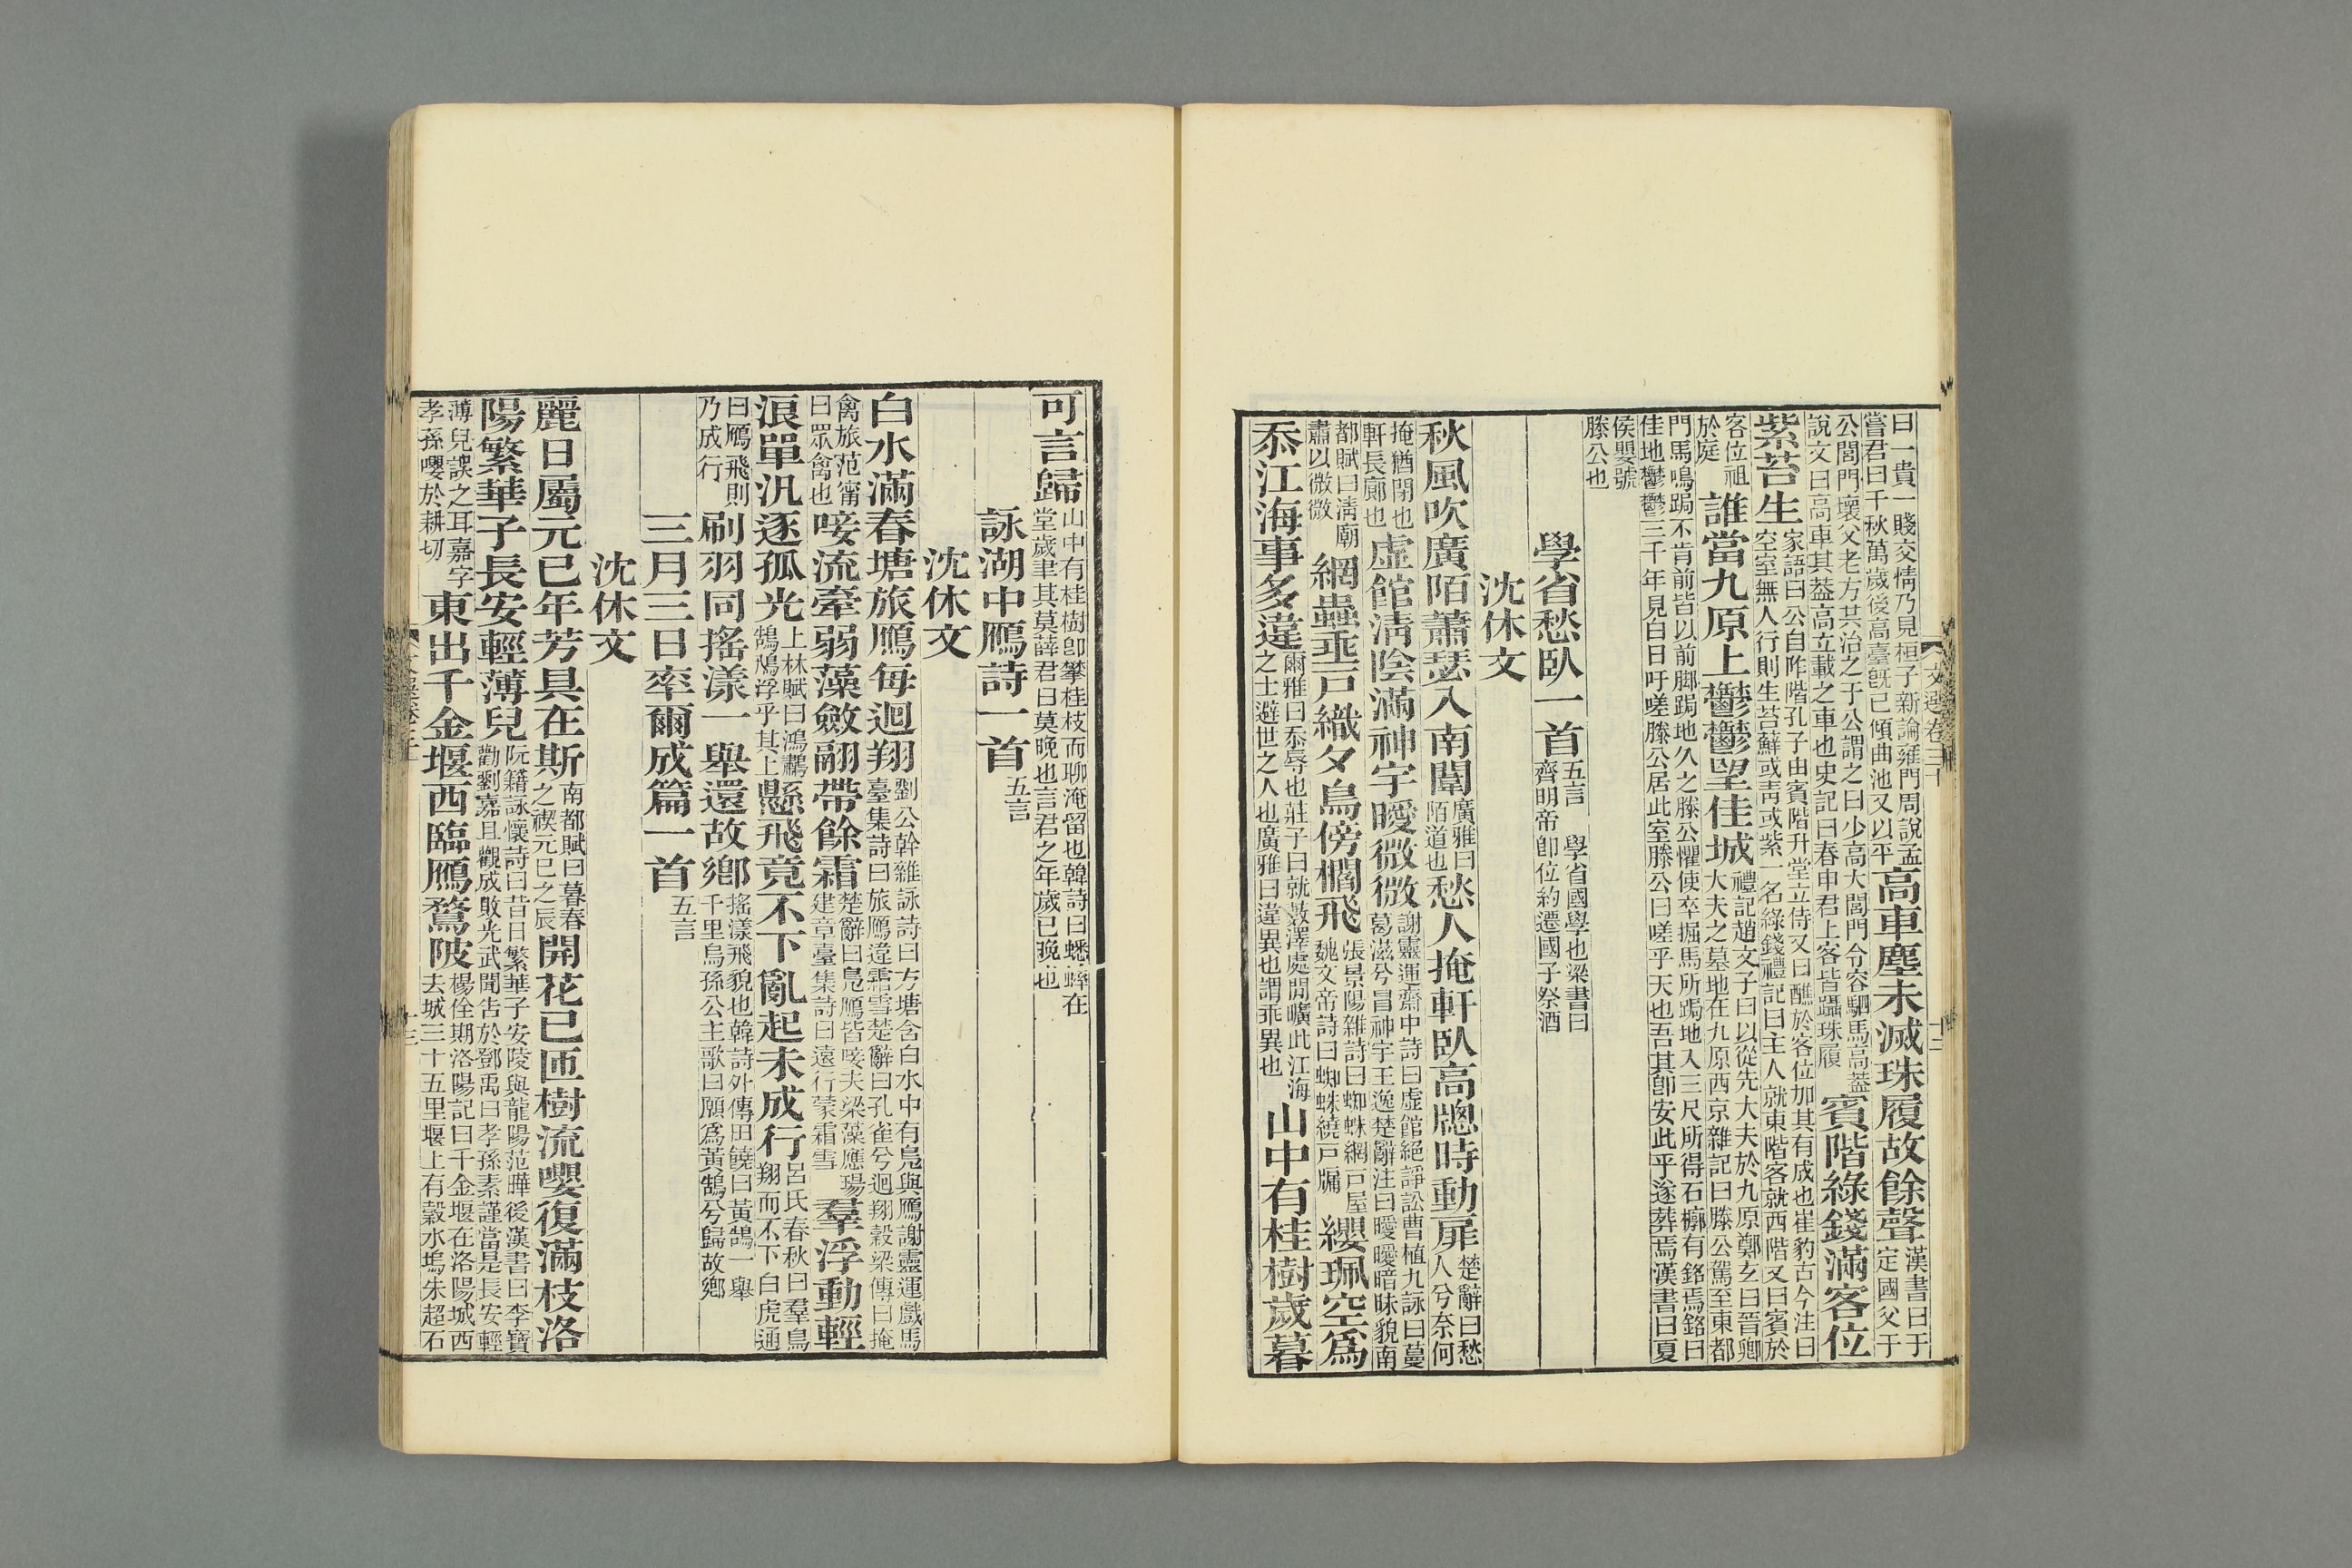 文選卷三十
十二
曰一貴一賤交情乃見桓子新論雍門周說孟
嘗君曰千秋萬歲後高臺旣已傾曲池又以平
高車塵未滅珠履故餘聲
漢書曰于
定國父于
公閭門壞父老方共治之于公謂之曰少高大閭門令容駟馬高葢
說文曰高車其葢高立載之車也史記曰春申君上客皆躡珠履
賓階綠錢滿客位
紫苔生
家語曰公自阼階孔子由賓階升堂立侍又曰醮於客位加其有成也崔豹古今注曰
空室無人行則生苔蘚或靑或紫一名綠錢禮記曰主人就東階客就西階又曰賓於
客位祖
於庭
誰當九原上鬱鬱望佳城
禮記趙文子曰以從先大夫於九原鄭玄曰晉卿
大夫之墓地在九原西京雜記曰滕公駕至東都
門馬鳴跼不肯前皆以前脚跼地久之滕公懼使卒掘馬所跼地入三尺所得石槨有銘焉銘曰
佳地鬱鬱三千年見白日吁嗟滕公居此室滕公曰嗟乎天也吾其卽安此乎遂葬焉漢書曰夏
侯嬰號
滕公也
學省愁臥一首
五言　學省國學也梁書曰
齊明帝卽位約遷國子祭酒
沈休文
秋風吹廣陌蕭瑟入南闈
廣雅曰
陌道也
愁人掩軒臥高牎時動扉
楚辭曰愁
人兮奈何
掩猶閉也
軒長廊也
虛館淸陰滿神宇曖微微
謝靈運齋中詩曰虛館絕諍訟曹植九詠曰蔓
葛滋兮冒神宇王逸楚辭注曰曖曖暗昧貌南
都賦曰淸廟
肅以微微
網蟲垂戸織夕鳥傍櫩飛
張景陽雜詩曰蜘蛛網戸屋
魏文帝詩曰蜘蛛繞戸牖
纓珮空爲
忝江海事多違
爾雅曰忝辱也莊子曰就藪澤處閒曠此江海
之士避世之人也廣雅曰違異也謂乖異也
山中有桂樹歲暮
可言歸
山中有桂樹卽攀桂枝而聊淹留也韓詩曰蟋蟀在
堂歲聿其莫薛君曰莫晚也言君之年歲已晚也
詠湖中鴈詩一首
五言
沈休文
白水滿春塘旅鴈每迴翔
劉公幹雜詠詩曰方塘含白水中有鳧與鴈謝靈運戲馬
臺集詩曰旅鴈違霜雪楚辭曰孔雀兮迴翔穀梁傳曰掩
禽旅范甯
曰眾禽也
唼流牽弱藻斂翮帶餘霜
楚辭曰鳧鴈皆唼夫梁藻應瑒
建章臺集詩曰遠行蒙霜雪
羣浮動輕
浪單汎逐孤光
上林賦曰鴻鷫
鵠鴇浮乎其上
懸飛竟不下亂起未成行
呂氏春秋曰羣鳥
翔而不下白虎通
曰鴈飛則
乃成行
刷羽同搖漾一舉還故鄉
搖漾飛貌也韓詩外傳田饒曰黃鵠一舉
千里烏孫公主歌曰願爲黃鵠兮歸故鄉
三月三日率爾成篇一首
五言
沈休文
麗日屬元巳年芳具在斯
南都賦曰暮春
之禊元巳之辰
開花已匝樹流嚶復滿枝洛
陽繁華子長安輕薄兒
阮籍詠懷詩曰昔日繁華子安陵與龍陽范曄後漢書曰李寶
勸劉嘉且觀成敗光武聞告於鄧禹曰孝孫素謹當是長安輕
薄兒誤之耳嘉字
孝孫嚶於耕切
東出千金堰西臨鴈鶩陂
楊佺期洛陽記曰千金堰在洛陽城西
去城三十五里堰上有穀水塢朱超石
十三